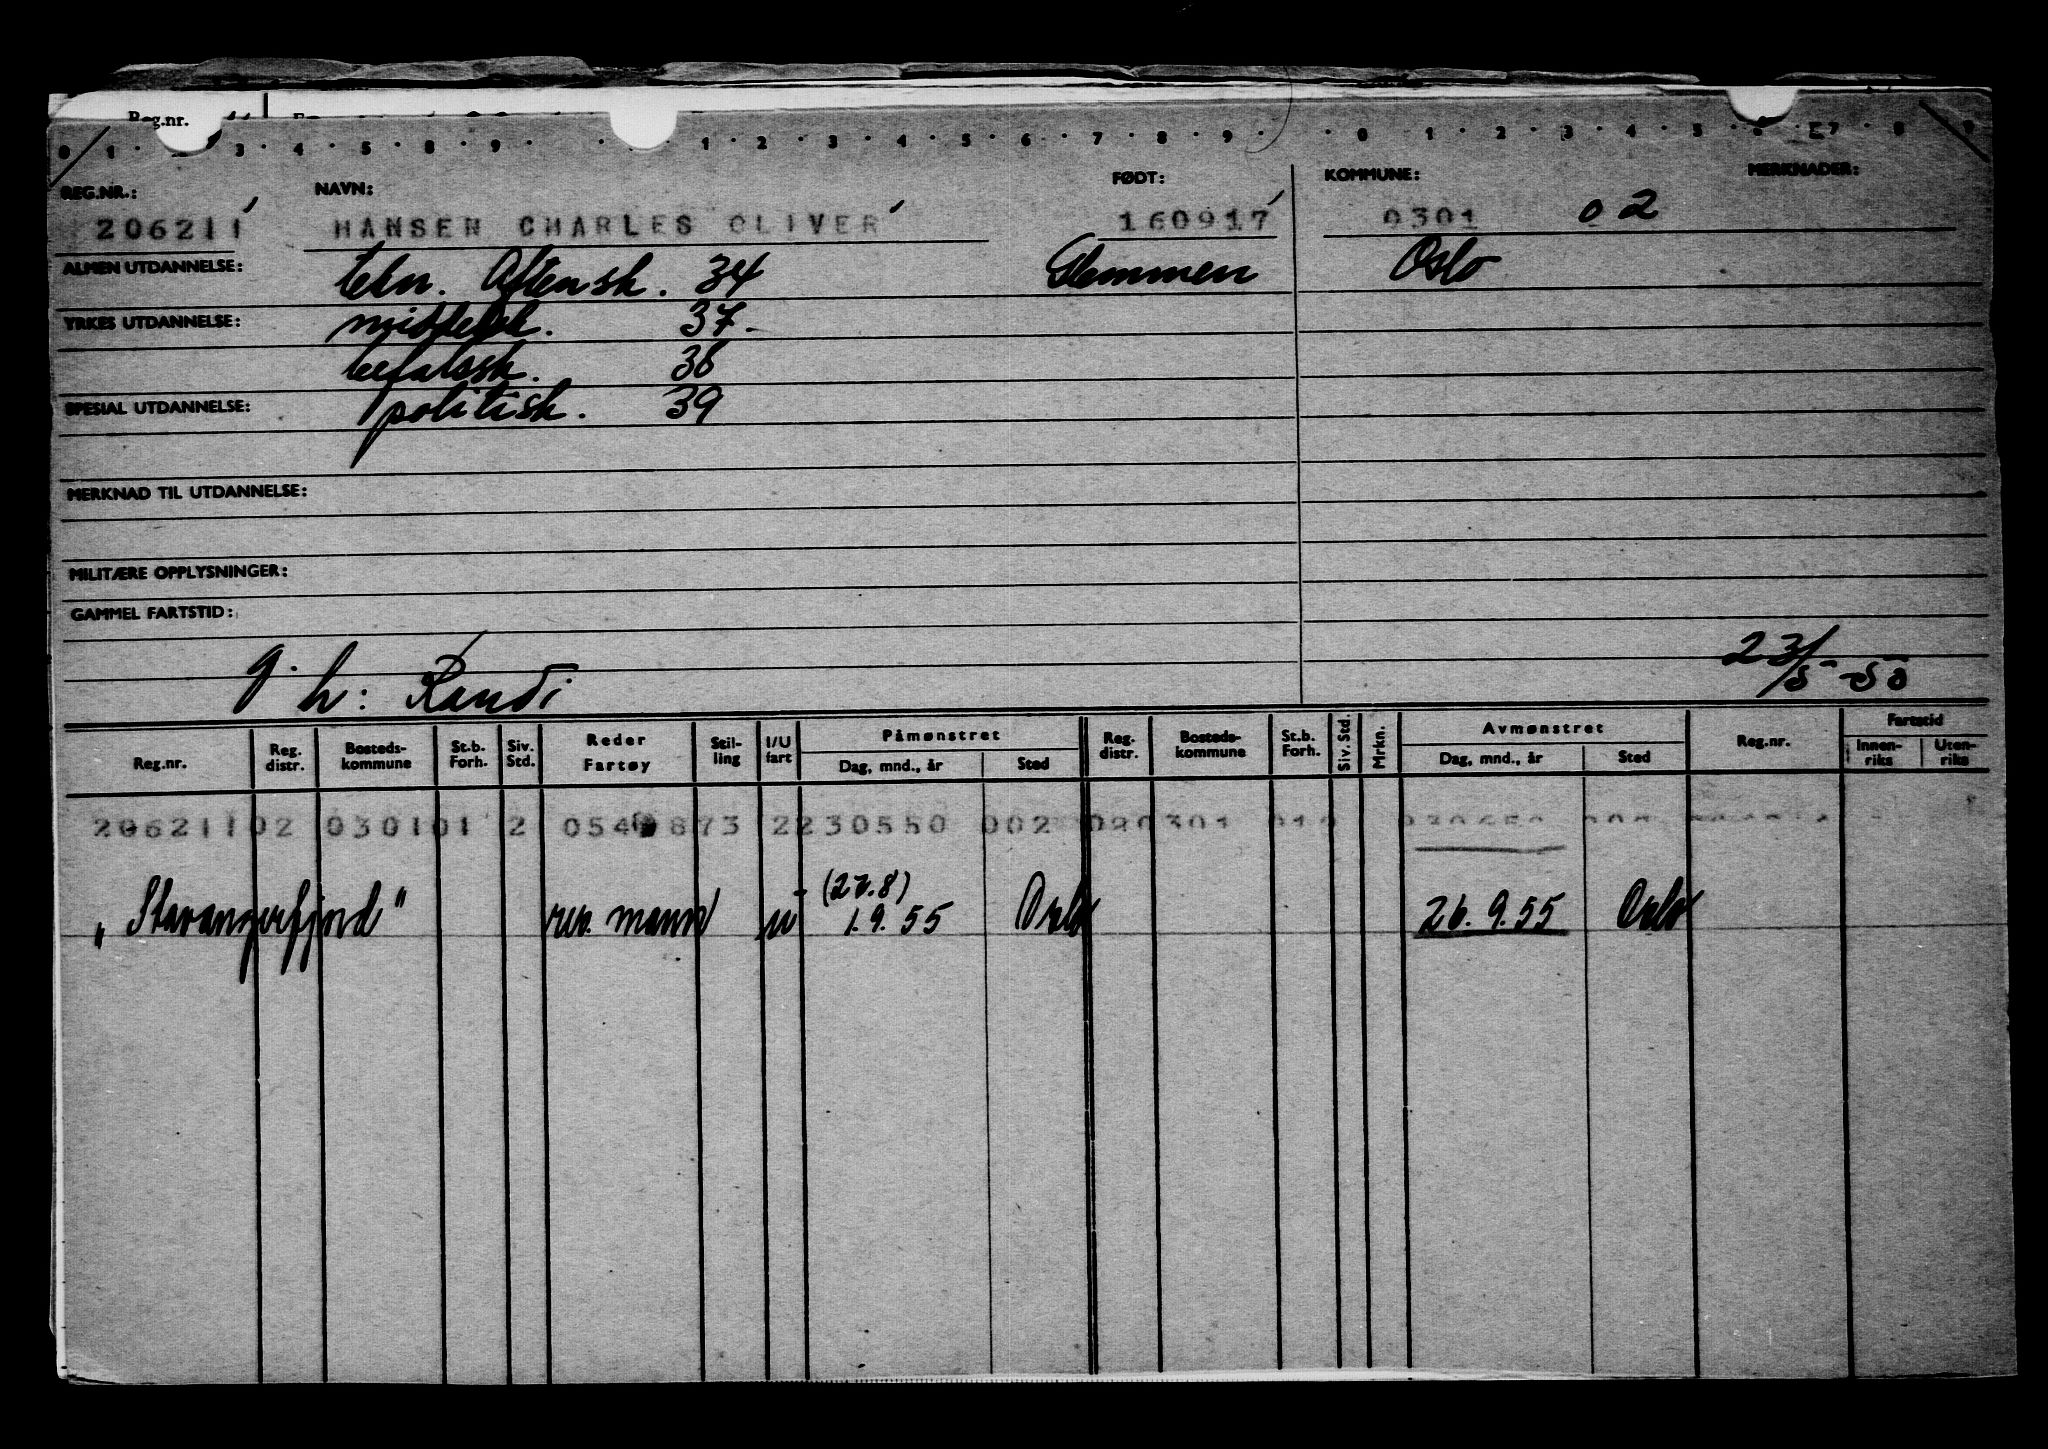 Reg.nr.
0 1 3 4 5 8 9 1 2 3 4 5 6 7 8 9 0 1 2 3 4 5 7 8 9
REG.NR.: NAVN: FØDT: KOMMUNE: MERKNADER:
206211 HANSEN CHARLES OLIVER 160917 0301 02
ALMEN UTDANNELSE: tekn. Aftensk. 34 Glemmen Oslo
YRKES UTDANNELSE: middelsk. 37.
befalssk. 38
SPESIAL UTDANNELSE: politisk. 39
MERKNAD TIL UTDANNELSE:
MILITÆRE OPPLYSNINGER:
GAMMEL FARTSTID:
g. h: Randi 23/5-50
Reg.nr. Reg. distr. Bosteds-kommune St.b. Forh. Siv. Std. Reder Fartøy Stil-ling I/U fart Påmønstret Dag, mnd., år Sted Reg. distr. Bosteds-kommune St.b. Forh. Siv. Std. Mrkn. Avmønstret Dag, mnd., år Sted Reg.nr. Fartstid Innen-riks Uten-riks
206211 02 0301 01 2 054 873 2 230550 002
(27.8)
„Stavangerfjord" res. mann u 1.9.55 Oslo 26.9.55 Oslo